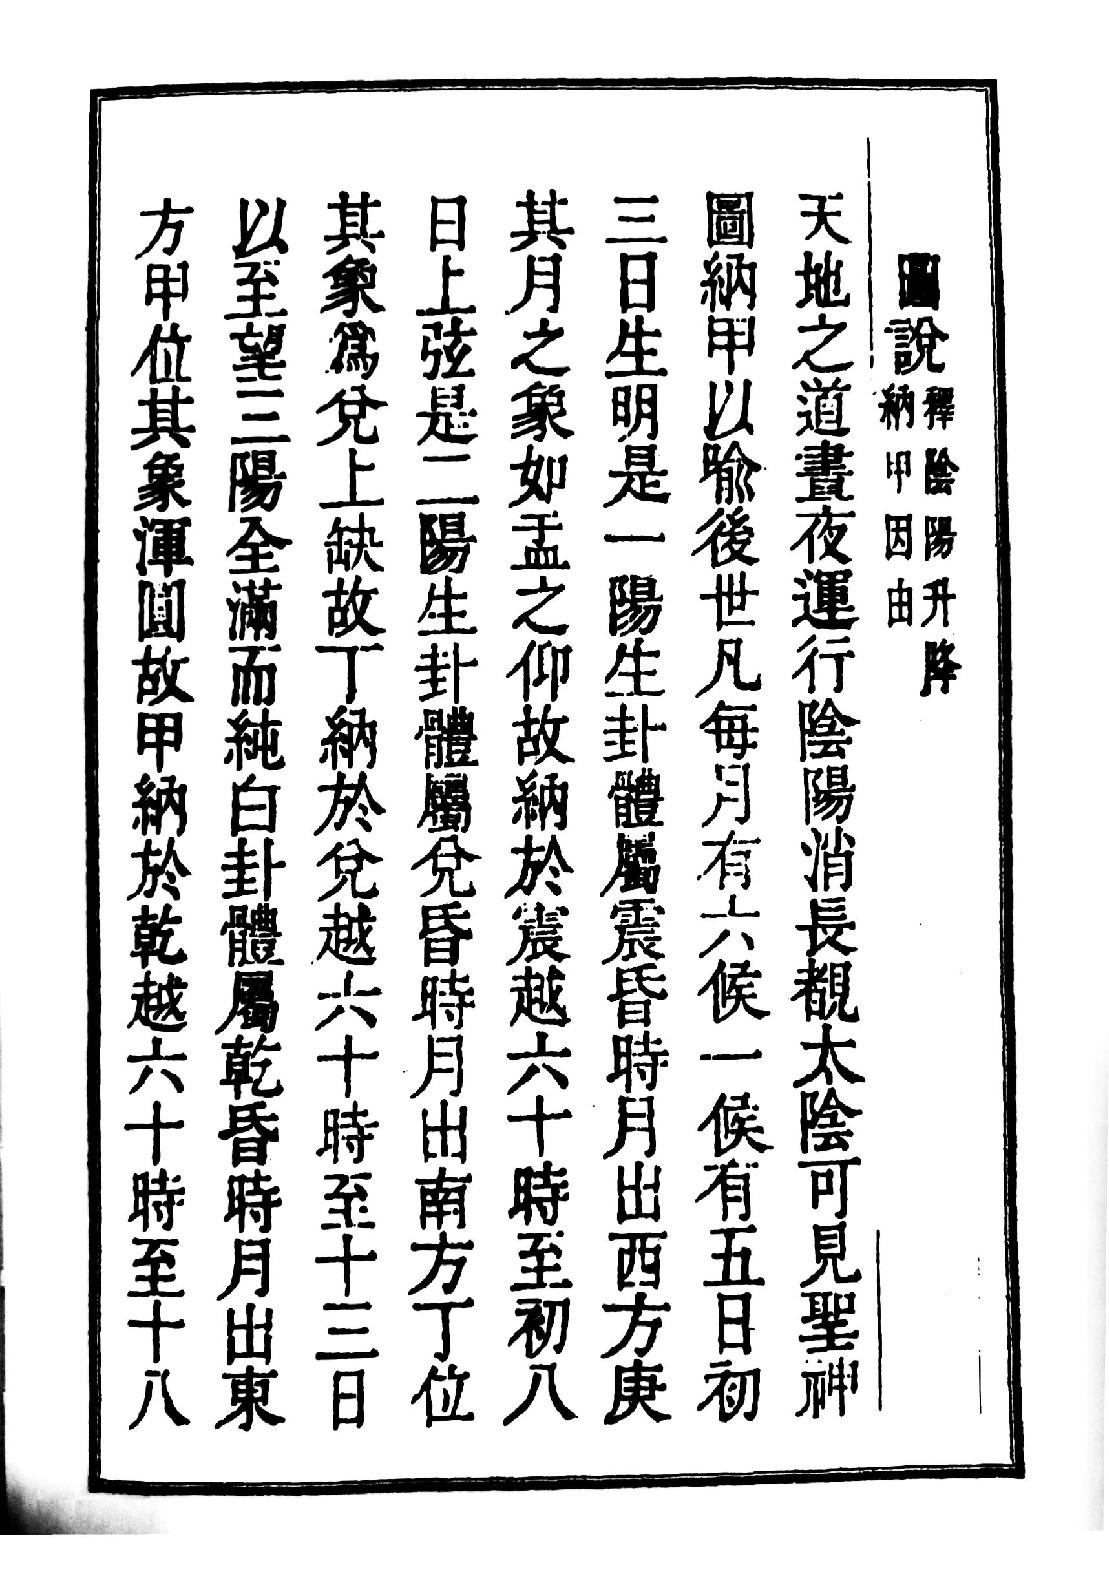 圖說
釋陰陽升降
納甲因由
天地之道晝夜運行陰陽消長覩太陰可見聖神
圖納甲以喻後世凡每月有六候一候有五日初
三日生明是一陽生卦體屬震昏時月出西方庚
其月之象如盂之仰故納於震越六十時至初八
日上弦是二陽生卦體屬兌昏時月出南方丁位
其象爲兌上缺故丁納於兌越六十時至十三日
以至望三陽全滿而純白卦體屬乾昏時月出東
方甲位其象渾圓故甲納於乾越六十時至十八